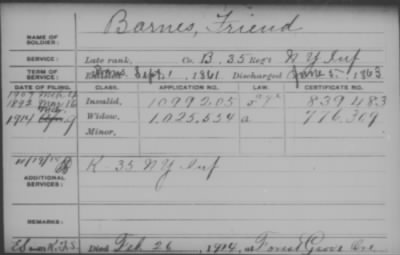 Barnes, Friend
NAME OF SOLDIER:
SERVICE: Late rank, Co. B, 35 Reg't N Y Inf
TERM OF SERVICE: Enlisted Sept 1, 1861 Discharged June 5, 1863
DATE OF FILING. CLASS. APPLICATION NO. LAW. CERTIFICATE NO.
1892 Invalid, 1099205 839483
1914 Widow, 1,025,554 a 776,309
Minor,
ADDITIONAL SERVICES: K-35 NY Inf
REMARKS:
Died Feb 26, 1914, at Forest Grove Ore